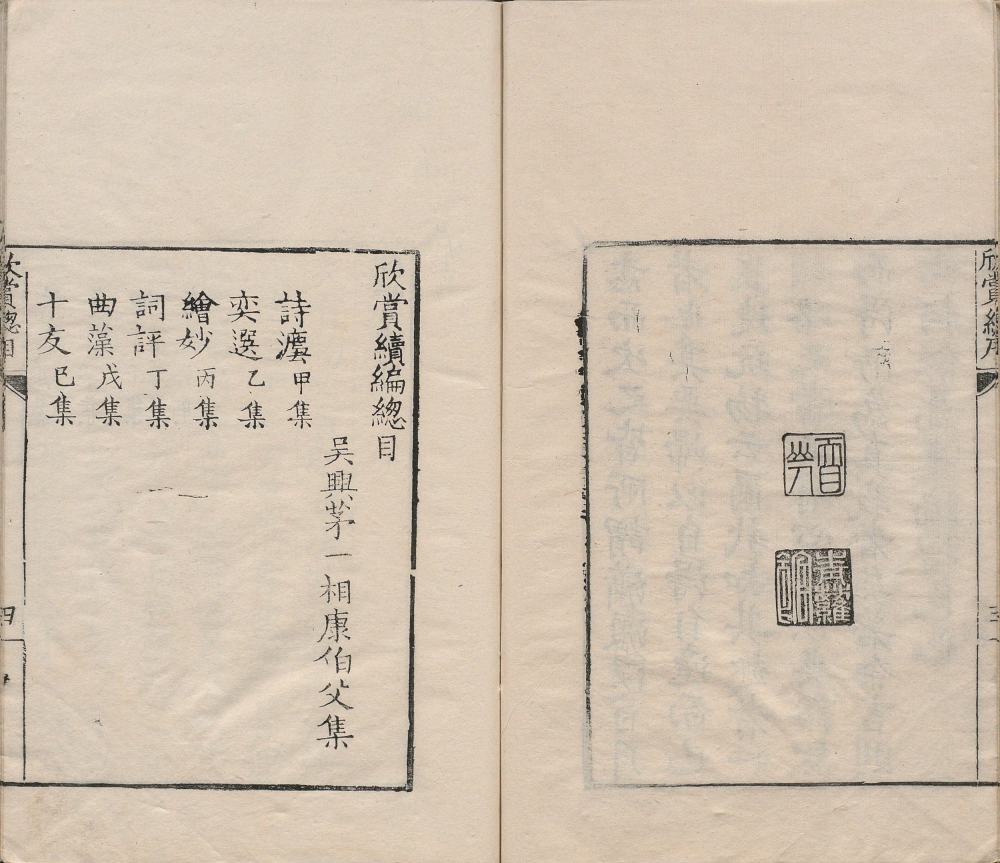 欣賞續序
三
欣賞續編總目
吴興茅一相康伯父集
詩灋甲集
奕選乙集
繪妙丙集
詞評丁集
曲藻戊集
十友巳集
欣賞總目
四